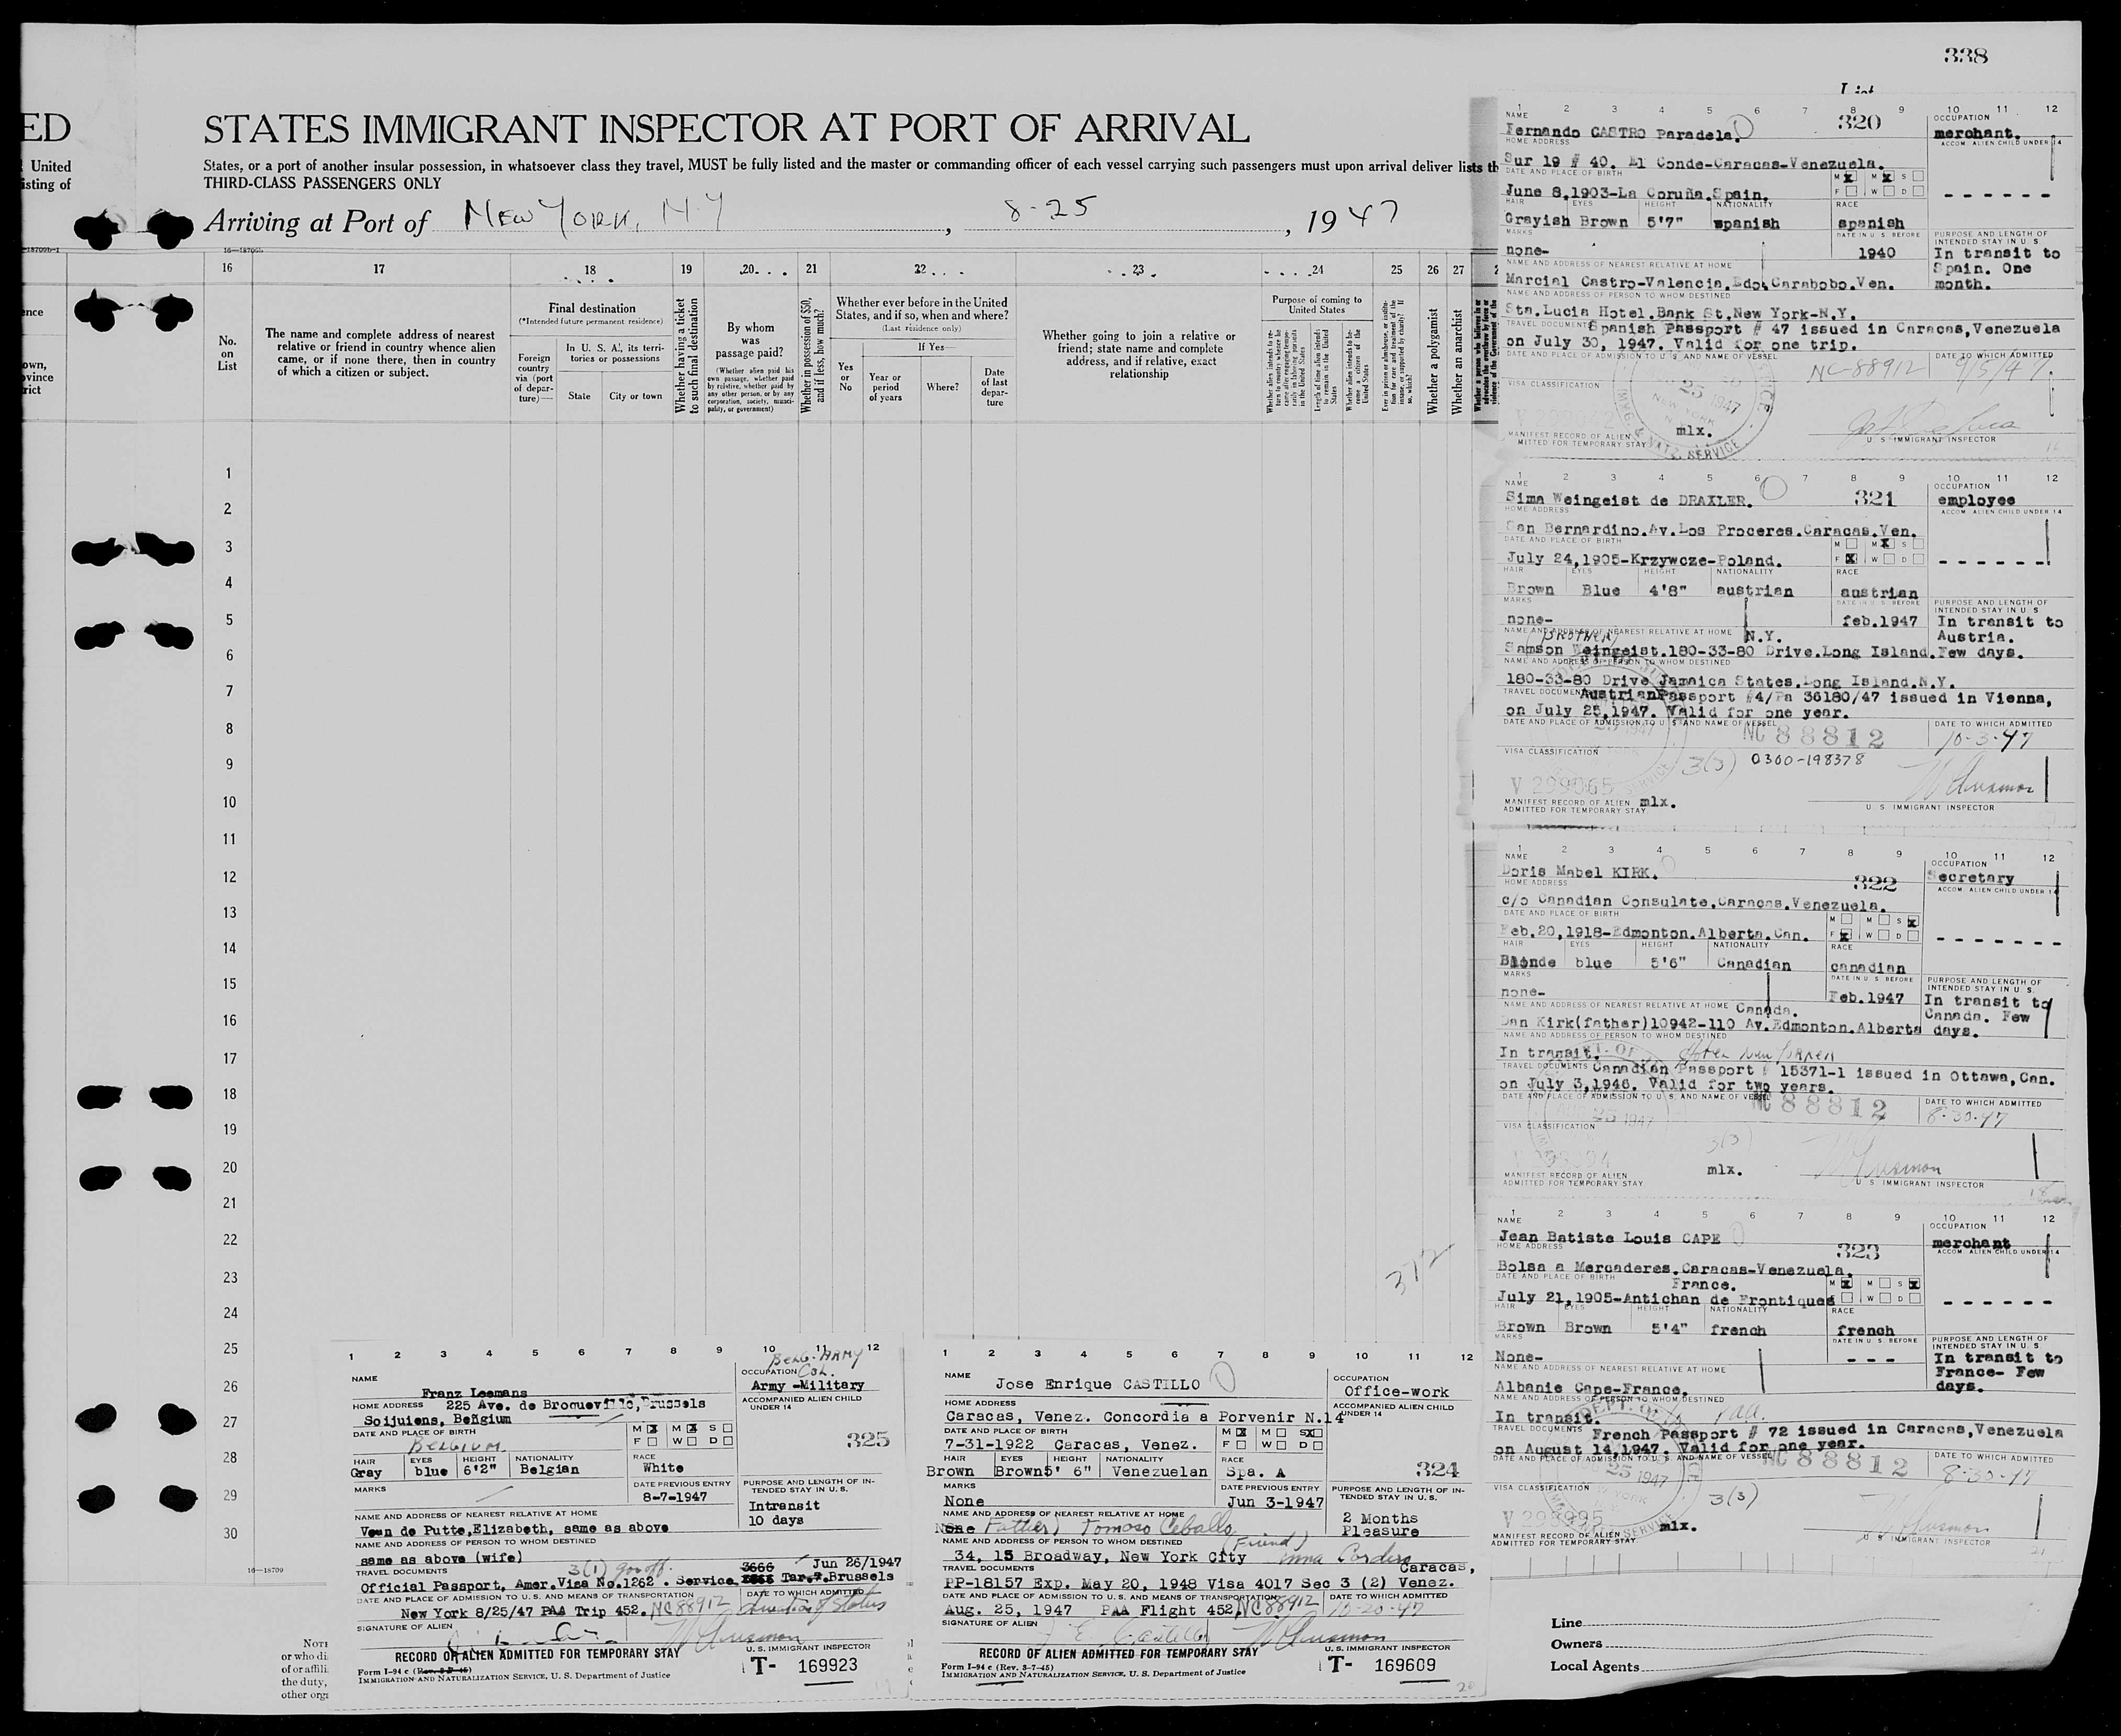 338
ED
STATES IMMIGRANT INSPECTOR AT PORT OF ARRIVAL
United
States, or a port of another insular possession, in whatsoever class they travel, MUST be fully listed and the master or commanding officer of each vessel carrying such passengers must upon arrival deliver lists th
isting of
THIRD-CLASS PASSENGERS ONLY
Arriving at Port of NEW YORK, N.Y , 8-25 , 1947
16 17 18 19 20 21 22 23 24 25 26 27
No. on List
The name and complete address of nearest relative or friend in country whence alien came, or if none there, then in country of which a citizen or subject.
Final destination
(*Intended future permanent residence)
Foreign country via (port of departure)—
In U. S. A., its territories or possessions
State City or town
Whether having a ticket to such final destination
By whom was passage paid?
(Whether alien paid his own passage, whether paid by relative, whether paid by any other person, or by any corporation, society, municipality, or government)
Whether in possession of $50, and if less, how much?
Whether ever before in the United States, and if so, when and where?
(Last residence only)
Yes or No
If Yes—
Year or period of years
Where?
Date of last departure
Whether going to join a relative or friend; state name and complete address, and if relative, exact relationship
Purpose of coming to United States
Length of time alien intends to remain in the United States
Whether a polygamist
Whether an anarchist
1
2
3
4
5
6
7
8
9
10
11
12
13
14
15
16
17
18
19
20
21
22
23
24
25
26
27
28
29
30
16—18709
372
1 2 3 4 5 6 7 8 9 10 11 12
NAME
Fernando CASTRO Paradela.
320
OCCUPATION
merchant.
HOME ADDRESS
ACCOM. ALIEN CHILD UNDER 14
Sur 19 # 40. El Conde-Caracas-Venezuela.
DATE AND PLACE OF BIRTH
M X M X S
F W D
June 8,1903-La Coruña.Spain.
HAIR EYES HEIGHT NATIONALITY RACE
Grayish Brown 5'7" spanish spanish
MARKS
DATE IN U. S. BEFORE
PURPOSE AND LENGTH OF INTENDED STAY IN U. S.
none-
1940
In transit to Spain. One month.
NAME AND ADDRESS OF NEAREST RELATIVE AT HOME
Marcial Castro-Valencia.Edo.Carabobo.Ven.
NAME AND ADDRESS OF PERSON TO WHOM DESTINED
Sta.Lucia Hotel.Bank St.New York-N.Y.
TRAVEL DOCUMENTS
Spanish Passport # 47 issued in Caracas,Venezuela
on July 30, 1947. Valid for one trip.
DATE AND PLACE OF ADMISSION TO U. S. AND NAME OF VESSEL
DATE TO WHICH ADMITTED
NC-88912 9/5/47.
VISA CLASSIFICATION
25 1947
NEW YORK
IMMG. & NATZ. SERVICE
MANIFEST RECORD OF ALIEN
ADMITTED FOR TEMPORARY STAY
mlx.
U. S. IMMIGRANT INSPECTOR
1 2 3 4 5 6 7 8 9 10 11 12
NAME
Sima Weingeist de DRAXLER.
321
OCCUPATION
employee
HOME ADDRESS
ACCOM. ALIEN CHILD UNDER 14
San Bernardino.Av.Los Proceres.Caracas.Ven.
DATE AND PLACE OF BIRTH
M M X S
F X W D
July 24,1905-Krzywcze-Poland.
HAIR EYES HEIGHT NATIONALITY RACE
Brown Blue 4'8" austrian austrian
MARKS
DATE IN U. S. BEFORE
PURPOSE AND LENGTH OF INTENDED STAY IN U. S.
none-
feb.1947
In transit to Austria. Few days.
NAME AND ADDRESS OF NEAREST RELATIVE AT HOME
(BROTHER) N.Y.
Samson Weingeist.180-33-80 Drive.Long Island.
NAME AND ADDRESS OF PERSON TO WHOM DESTINED
180-33-80 Drive Jamaica States.Long Island.N.Y.
TRAVEL DOCUMENTS
AustrianPassport #4/Pa 36180/47 issued in Vienna,
on July 25,1947. Valid for one year.
DATE AND PLACE OF ADMISSION TO U. S. AND NAME OF VESSEL
DATE TO WHICH ADMITTED
NC 88812 10-3-47
VISA CLASSIFICATION
3(3) 0300-198378
V 299065
MANIFEST RECORD OF ALIEN
ADMITTED FOR TEMPORARY STAY
mlx.
U. S. IMMIGRANT INSPECTOR
1 2 3 4 5 6 7 8 9 10 11 12
NAME
Doris Mabel KIRK.
322
OCCUPATION
Secretary
HOME ADDRESS
ACCOM. ALIEN CHILD UNDER 14
c/o Canadian Consulate.Caracas.Venezuela.
DATE AND PLACE OF BIRTH
M M S X
F X W D
Feb.20,1918-Edmonton.Alberta.Can.
HAIR EYES HEIGHT NATIONALITY RACE
Blonde blue 5'6" Canadian canadian
MARKS
DATE IN U. S. BEFORE
PURPOSE AND LENGTH OF INTENDED STAY IN U. S.
none-
Feb.1947
In transit to Canada. Few days.
NAME AND ADDRESS OF NEAREST RELATIVE AT HOME
Canada.
Dan Kirk(father)10942-110 Av.Edmonton.Alberta
NAME AND ADDRESS OF PERSON TO WHOM DESTINED
In transit. Hotel New Yorker
TRAVEL DOCUMENTS
Canadian Passport # 15371-1 issued in Ottawa,Can.
on July 3,1946. Valid for two years.
DATE AND PLACE OF ADMISSION TO U. S. AND NAME OF VESSEL
DATE TO WHICH ADMITTED
NC 88812 8-30-47
VISA CLASSIFICATION
3(3)
MANIFEST RECORD OF ALIEN
ADMITTED FOR TEMPORARY STAY
mlx.
U. S. IMMIGRANT INSPECTOR
1 2 3 4 5 6 7 8 9 10 11 12
NAME
Jean Batiste Louis CAPE
323
OCCUPATION
merchant
HOME ADDRESS
ACCOM. ALIEN CHILD UNDER 14
Bolsa a Mercaderes.Caracas-Venezuela.
DATE AND PLACE OF BIRTH
France.
M X M S X
F W D
July 21,1905-Antichan de Frontiques
HAIR EYES HEIGHT NATIONALITY RACE
Brown Brown 5'4" french french
MARKS
DATE IN U. S. BEFORE
PURPOSE AND LENGTH OF INTENDED STAY IN U. S.
None-
In transit to France- Few days.
NAME AND ADDRESS OF NEAREST RELATIVE AT HOME
Albanie Cape-France.
NAME AND ADDRESS OF PERSON TO WHOM DESTINED
In transit. PAA.
TRAVEL DOCUMENTS
French Passport # 72 issued in Caracas,Venezuela
on August 14,1947. Valid for one year.
DATE AND PLACE OF ADMISSION TO U. S. AND NAME OF VESSEL
DATE TO WHICH ADMITTED
NC 88812 8-30-47
VISA CLASSIFICATION
3(3)
V 299995
MANIFEST RECORD OF ALIEN
ADMITTED FOR TEMPORARY STAY
mlx.
U. S. IMMIGRANT INSPECTOR
1 2 3 4 5 6 7 8 9 10 11 12
BELG. ARMY
NAME
Franz Leemans
OCCUPATION COL.
Army -Military
HOME ADDRESS 225 Ave. de Broqueville,Brussels
Soijuiens, Belgium
ACCOMPANIED ALIEN CHILD UNDER 14
DATE AND PLACE OF BIRTH
BELGIUM.
M X M X S
F W D
325
HAIR EYES HEIGHT NATIONALITY RACE
Gray blue 6'2" Belgian White
MARKS
DATE PREVIOUS ENTRY
8-7-1947
PURPOSE AND LENGTH OF INTENDED STAY IN U.S.
Intransit
10 days
NAME AND ADDRESS OF NEAREST RELATIVE AT HOME
Veun de Putte,Elizabeth, same as above
NAME AND ADDRESS OF PERSON TO WHOM DESTINED
same as above (wife)
3(1) gov off. 3666 Jun 26/1947
TRAVEL DOCUMENTS
Official Passport, Amer.Visa No.1262 . Service Brussels
DATE AND PLACE OF ADMISSION TO U. S. AND MEANS OF TRANSPORTATION
DATE TO WHICH ADMITTED
New York 8/25/47 PAA Trip 452. NC88912 duration of Status
SIGNATURE OF ALIEN
U. S. IMMIGRANT INSPECTOR
RECORD OF ALIEN ADMITTED FOR TEMPORARY STAY
T- 169923
Form I-94 c (Rev. 8-7-45)
IMMIGRATION AND NATURALIZATION SERVICE, U. S. Department of Justice
1 2 3 4 5 6 7 8 9 10 11 12
NAME
Jose Enrique CASTILLO
OCCUPATION
Office-work
HOME ADDRESS
ACCOMPANIED ALIEN CHILD UNDER 14
Caracas, Venez. Concordia a Porvenir N.14
DATE AND PLACE OF BIRTH
7-31-1922 Caracas, Venez.
M X M S X
F W D
324
HAIR EYES HEIGHT NATIONALITY RACE
Brown Brown 5' 6" Venezuelan Spa. A
MARKS
DATE PREVIOUS ENTRY
None
Jun 3-1947
PURPOSE AND LENGTH OF INTENDED STAY IN U.S.
2 Months
Pleasure
NAME AND ADDRESS OF NEAREST RELATIVE AT HOME
None Father) Tomoso Ceballo
NAME AND ADDRESS OF PERSON TO WHOM DESTINED
(Friend)
34, 15 Broadway, New York City
TRAVEL DOCUMENTS
Caracas,
PP-18157 Exp. May 20, 1948 Visa 4017 Sec 3 (2) Venez.
DATE AND PLACE OF ADMISSION TO U. S. AND MEANS OF TRANSPORTATION
DATE TO WHICH ADMITTED
Aug. 25, 1947 PAA Flight 452, NC88912 10-20-47
SIGNATURE OF ALIEN
J E Castillo
U. S. IMMIGRANT INSPECTOR
RECORD OF ALIEN ADMITTED FOR TEMPORARY STAY
T- 169609
Form I-94 c (Rev. 8-7-45)
IMMIGRATION AND NATURALIZATION SERVICE, U. S. Department of Justice
20
Line
Owners
Local Agents